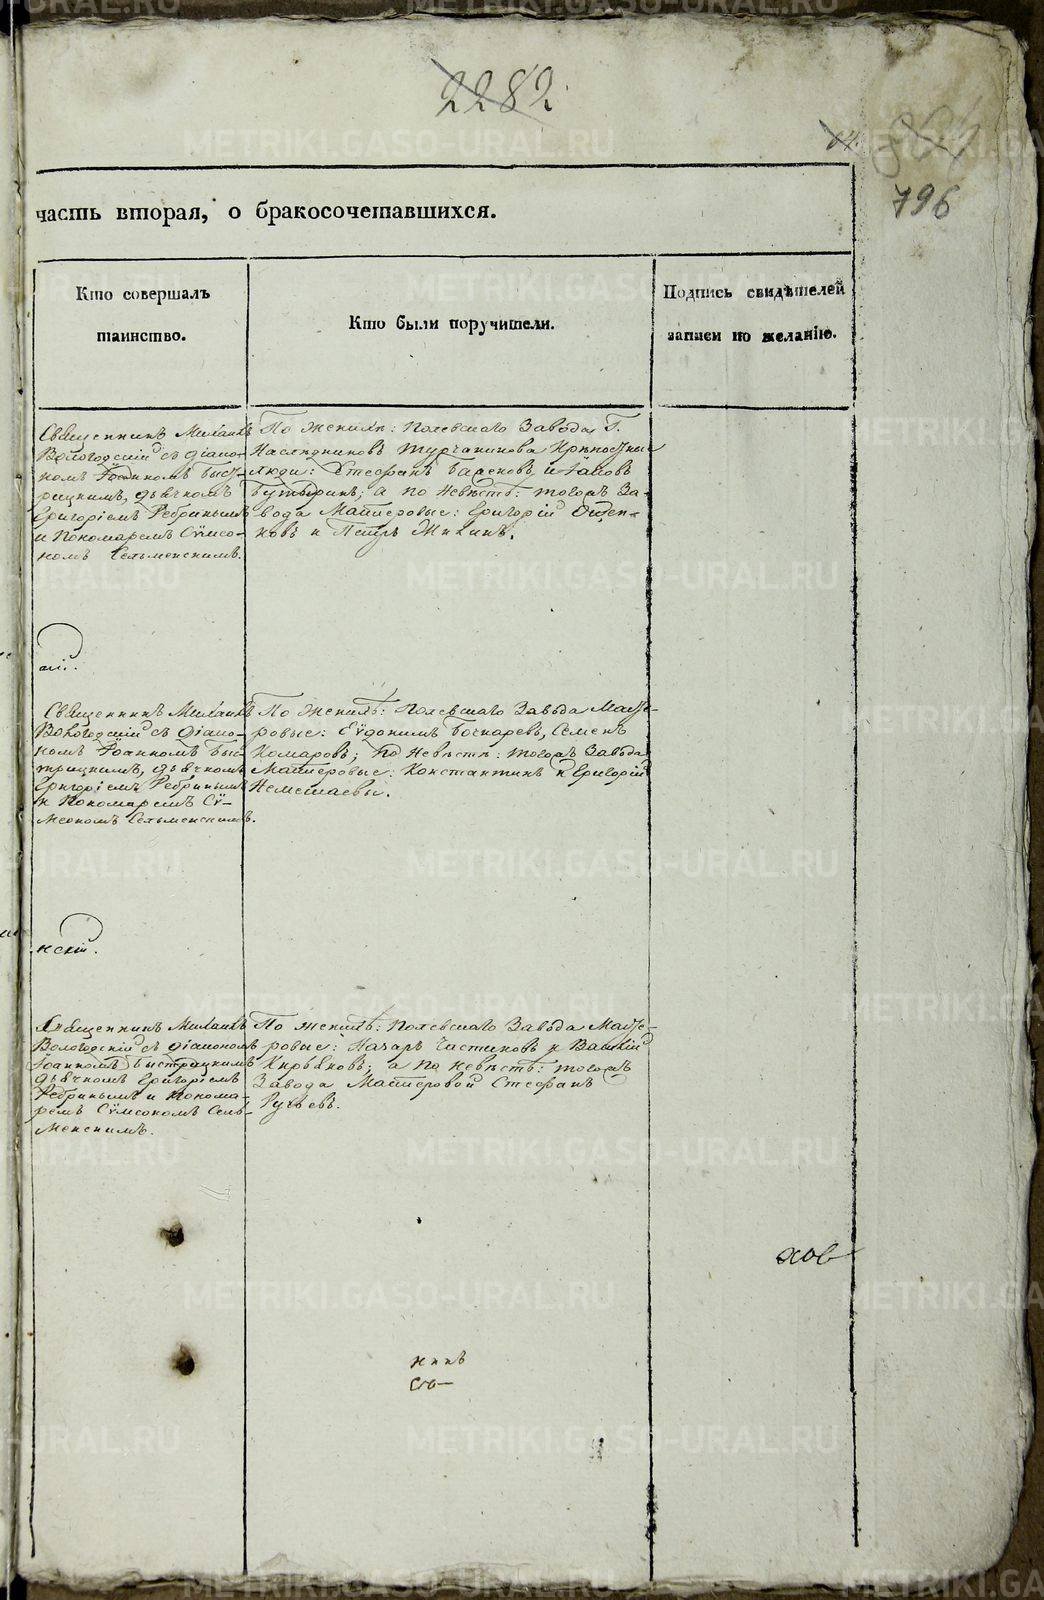 2282
796
часть вторая, о бракосочетавшихся.
Кто совершалъ
таинство.
Кто были поручители.
Подпись свидѣтелей
записи по желанію.
Священникъ Михаилъ
Вологодскій съ діако-
номъ Іоанномъ Быст-
рицкимъ, дьячкомъ
Григоріемъ Ребринымъ
и Пономаремъ Сѵмео-
номъ Сельменскимъ.
По женихѣ: Полевскаго Завода Г.
Наслѣдниковъ Турчанинова Крѣпостные
люди: Стефанъ и Іаковъ
Бутыринъ; а по Невѣстѣ: тогожъ За-
вода Мастеровые: Григорій
и Петръ Микинъ.
Священникъ Михаилъ
Вологодскій съ діако-
номъ Іоанномъ Быс-
трицкимъ, дьячкомъ
Григоріемъ Ребринымъ
и Пономаремъ Сѵ-
меономъ Сельменскимъ.
По женихѣ: Полевскаго Завода Масте-
ровые: Еѵдокимъ Боскаревъ, Семенъ
Комаровъ; По Невѣстѣ: тогожъ Завода
Мастеровые: Константинъ и Григорій
Немешаевы.
нскій.
Священникъ Михаилъ
Вологодскій съ діакономъ
Іоанномъ Быстрицкимъ
дьячкомъ Григоріемъ
Ребринымъ и понома-
ремъ Сѵмеономъ Сель-
менскимъ.
По женихѣ: Полевскаго Завода Масте-
ровые: Назаръ Частиковъ и Василій
Кирьяковъ; а по Невѣстѣ: тогожъ
Завода Мастеровой Стефанъ
Ручьевъ.
ховъ
никъ
Сѵ-
METRIKI.GASO-URAL.RU